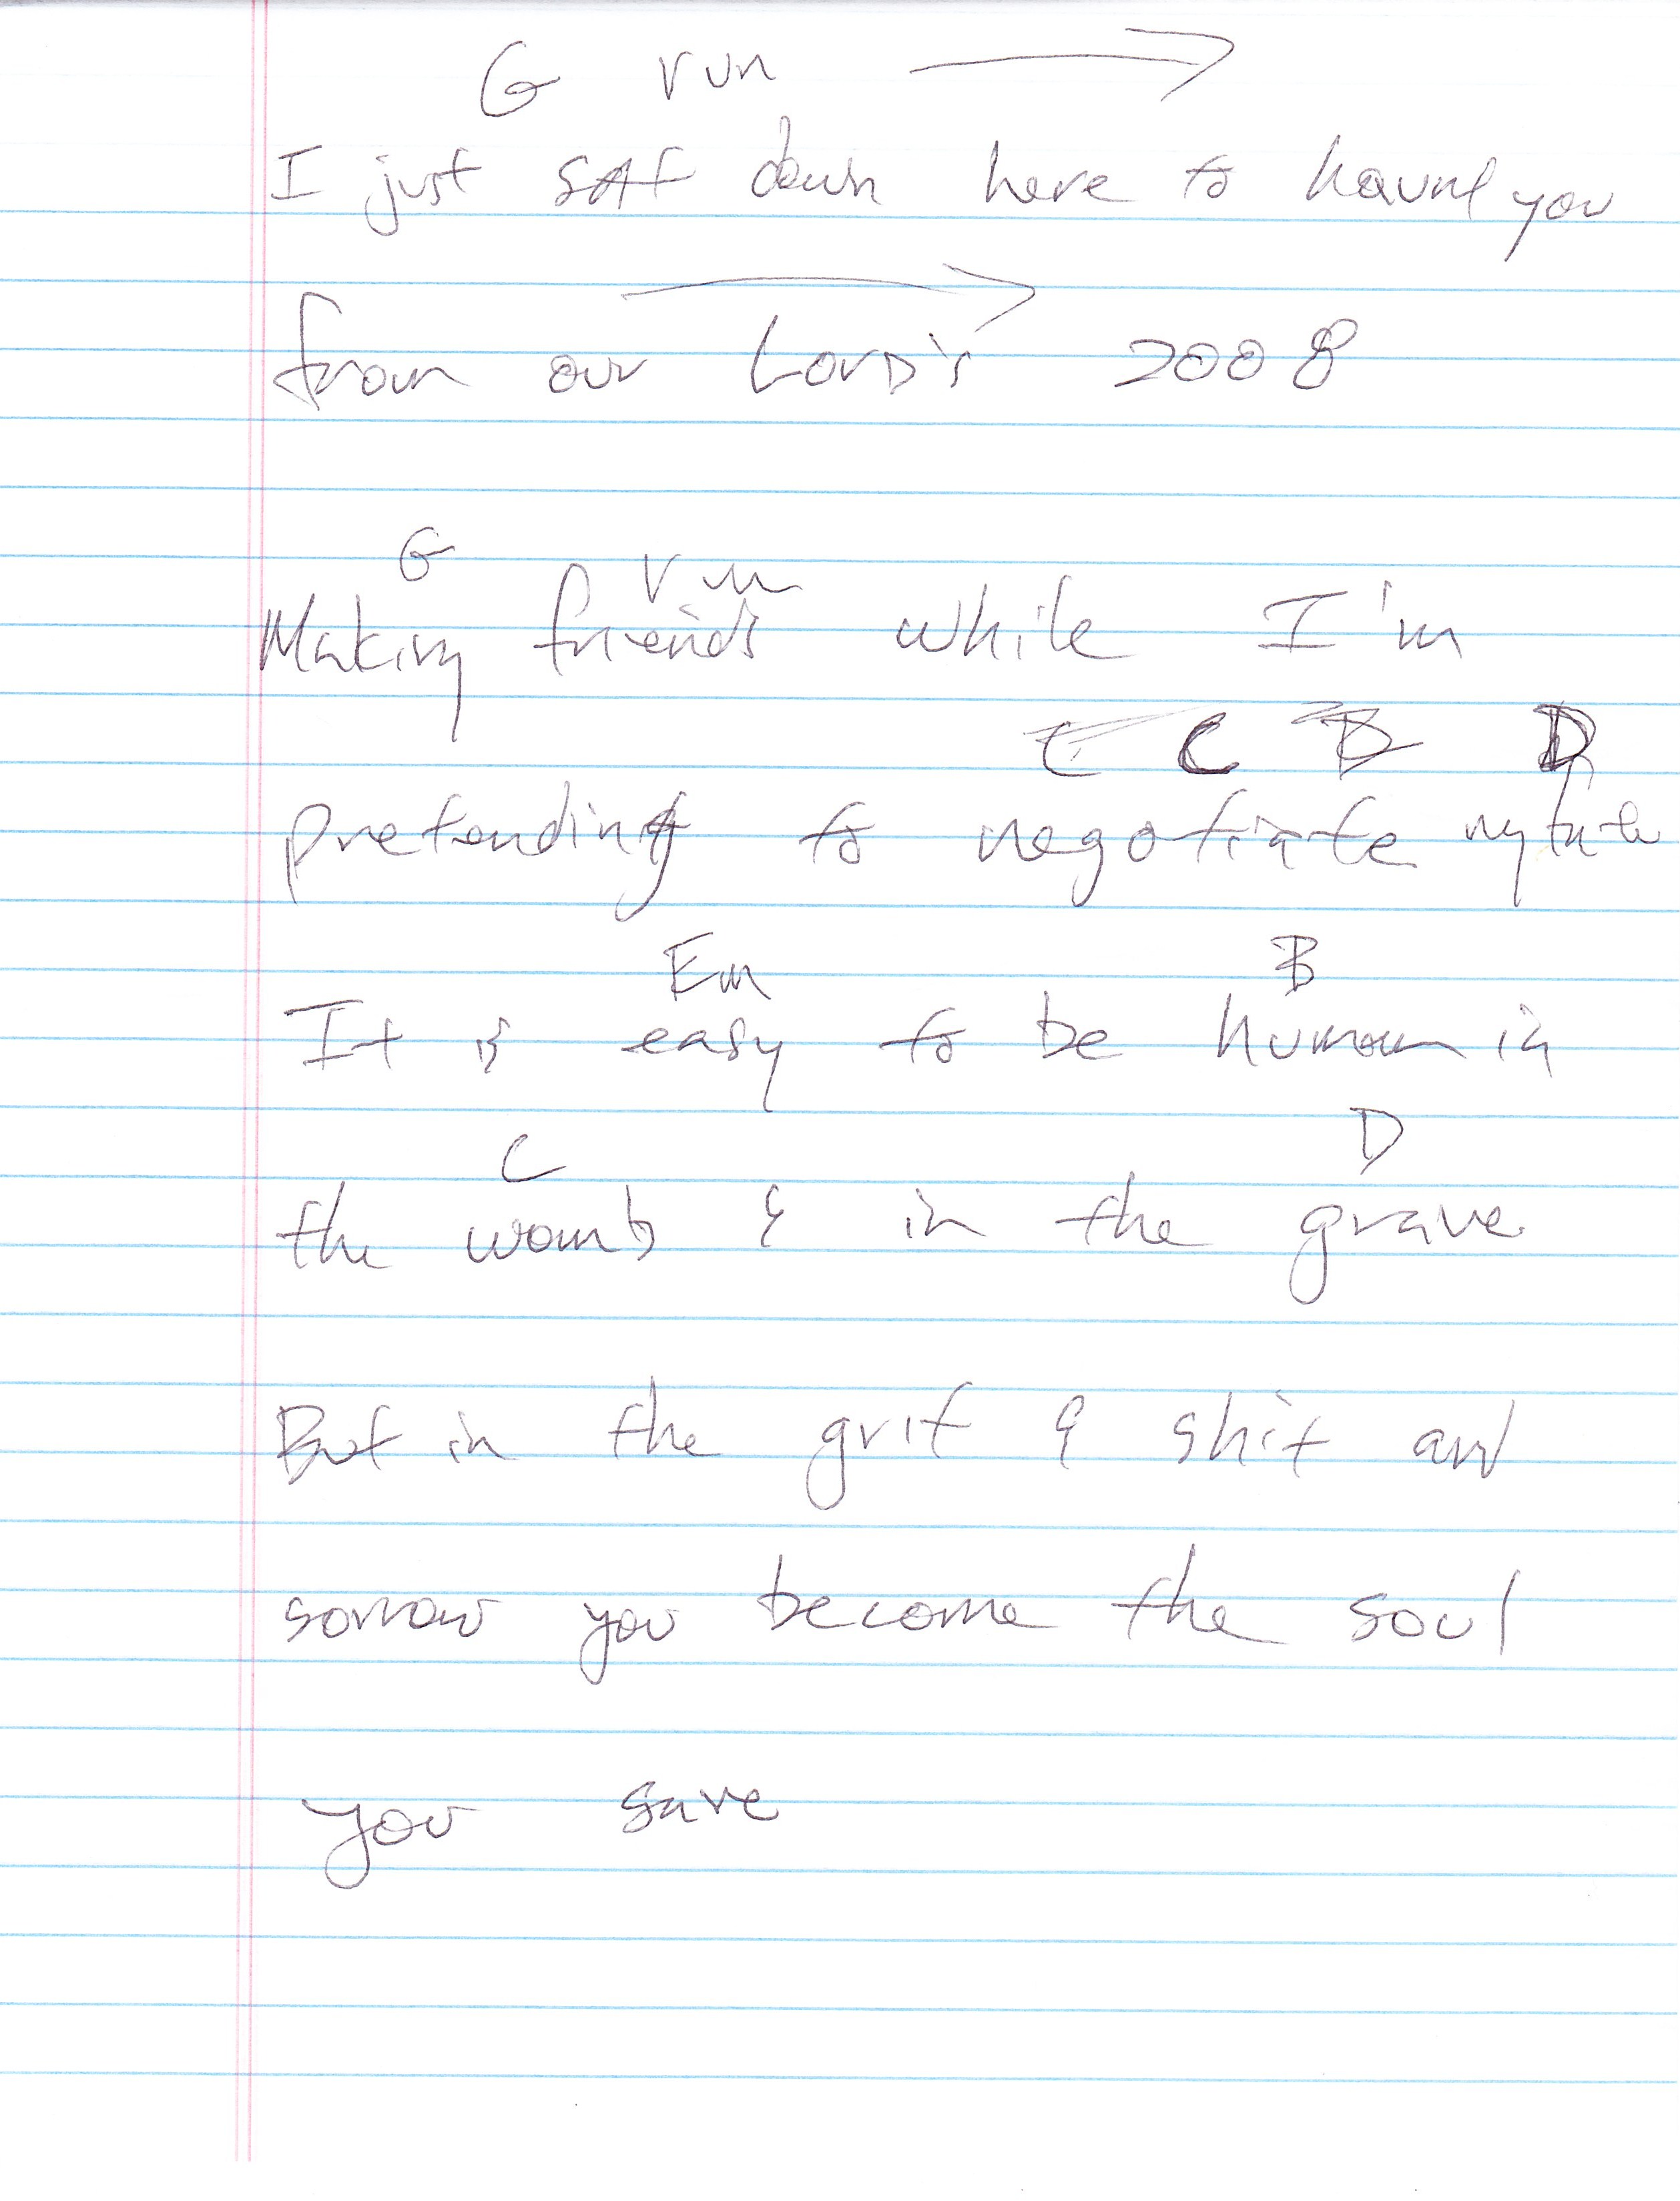 G run →
I just sat down here to haunt you
→
from our Lord's 2008
G run
Making friends while I'm
C C B D
pretending to negotiate my fate
Em B
It is easy to be human in
C D
the womb & in the grave
But in the grit & shit and
sorrow you become the soul
you save